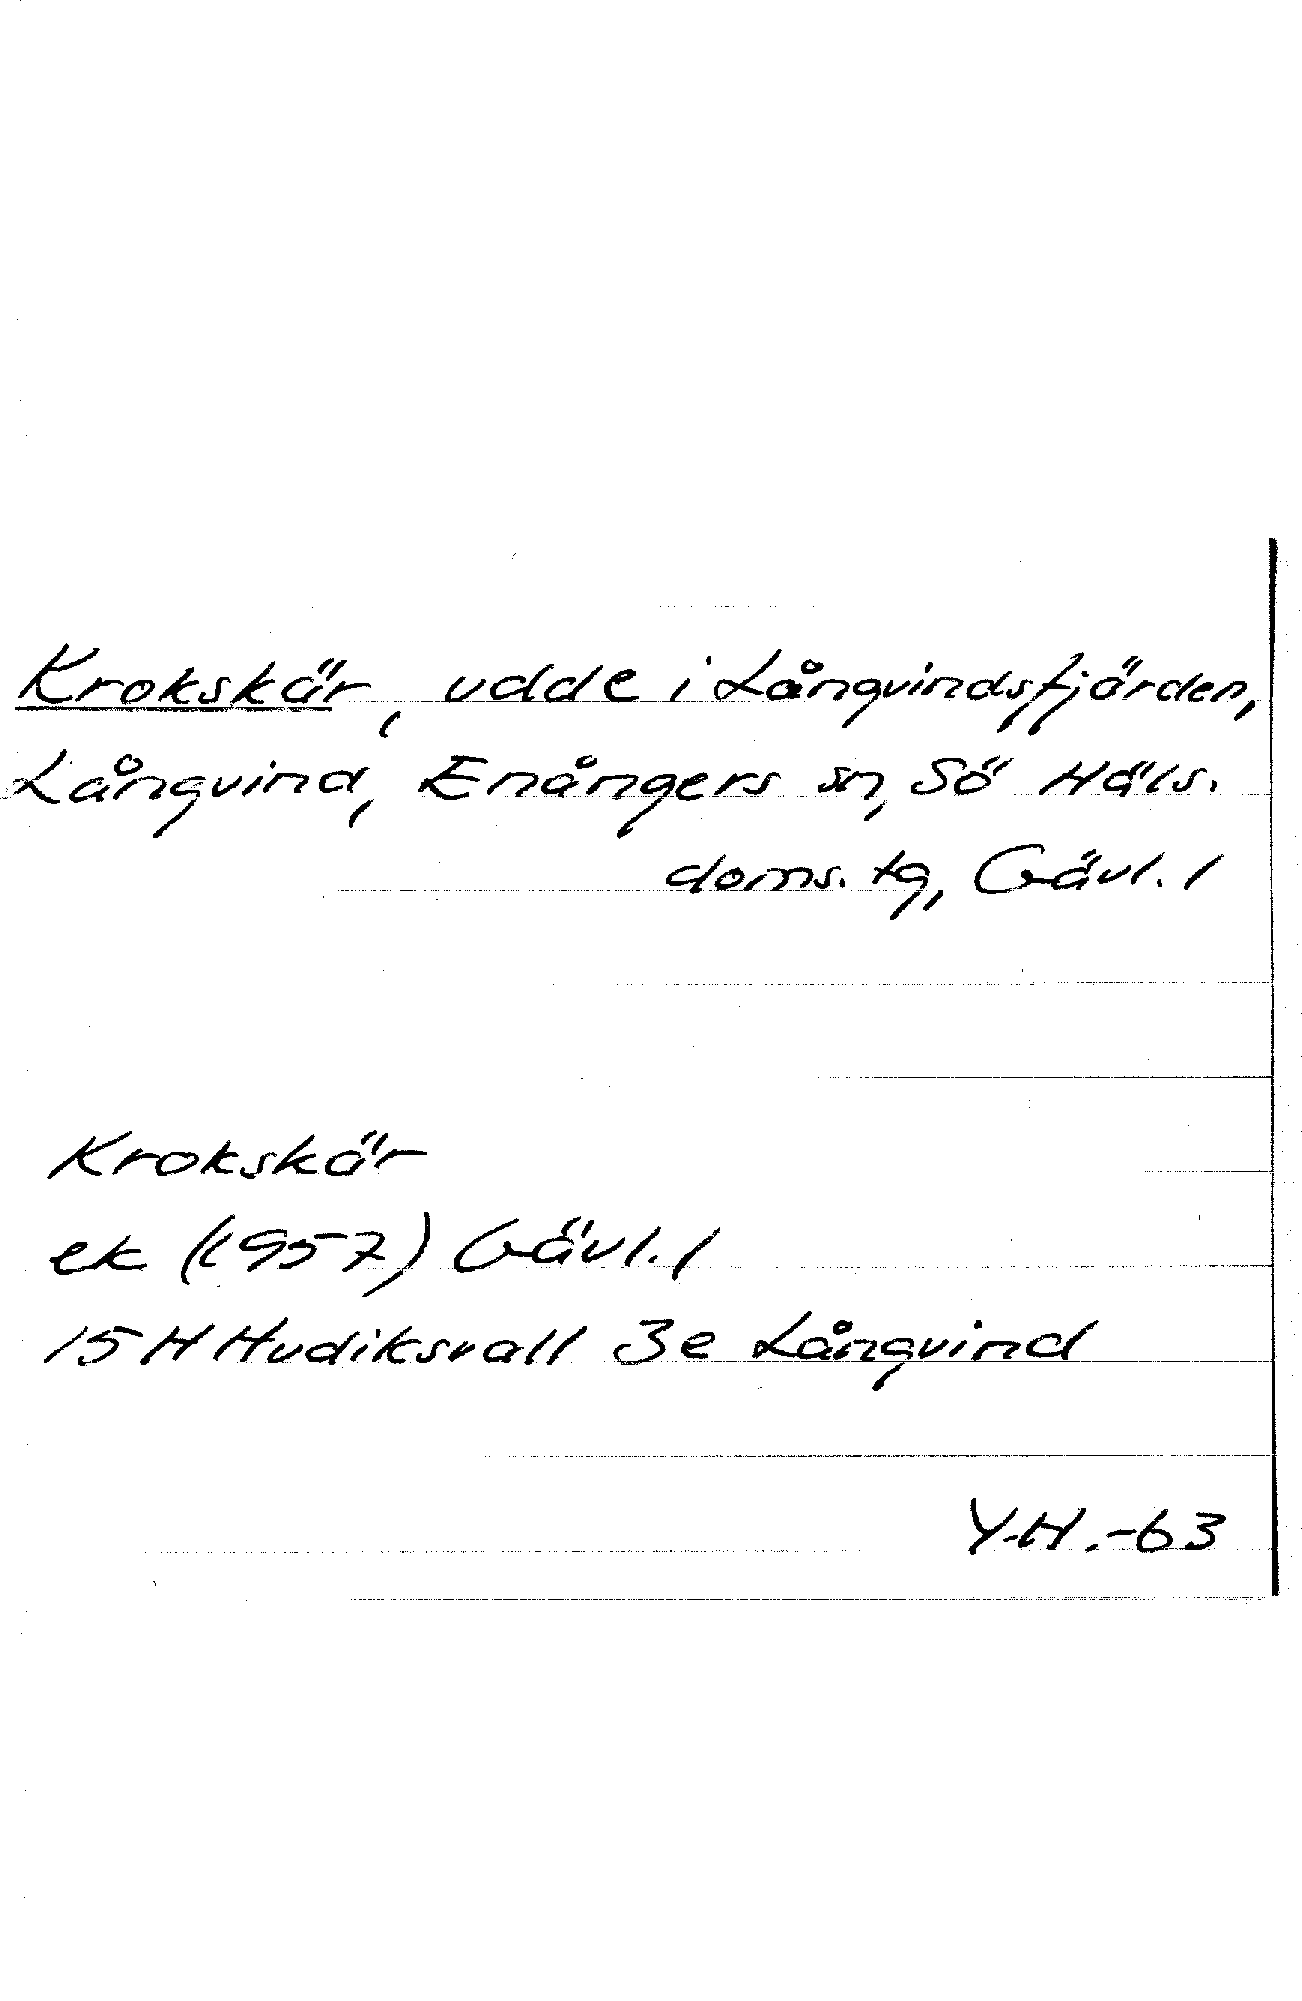 Krokskär, udde i Långvindsfjärden,
Långvind, Enångers sn, Sö Häls.
doms. tg, Gävl. l
Krokskär
ek (1957) Gävl. l
15 H Hudiksvall 3e Långvind
Y.H. -63